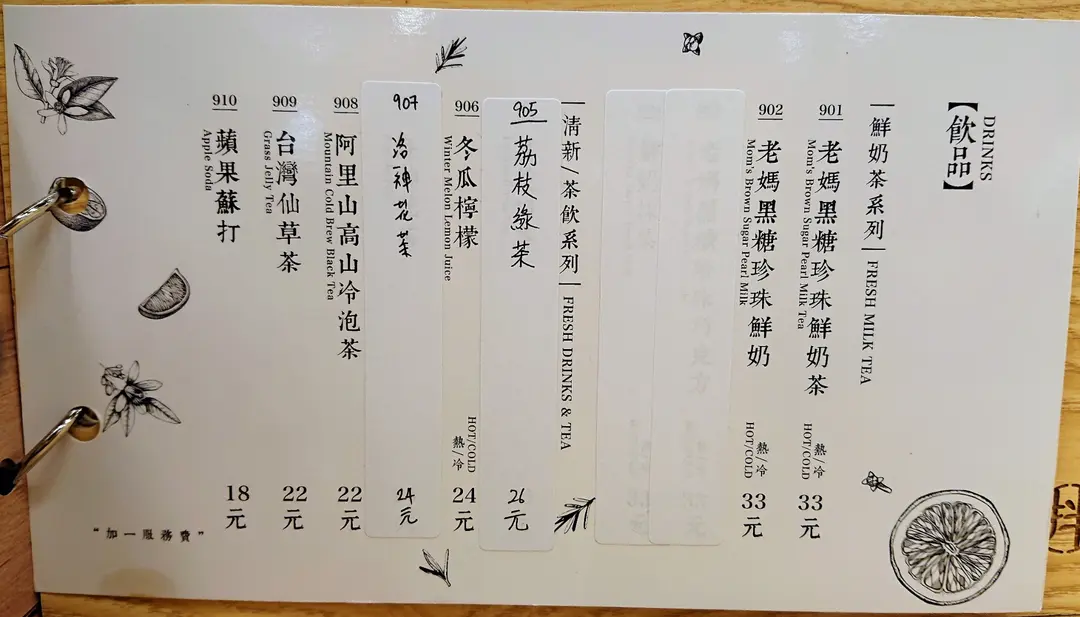 【飲品】
DRINKS
鮮奶茶系列
FRESH MILK TEA
901
老媽黑糖珍珠鮮奶茶
Mom's Brown Sugar Pearl Milk Tea
熱/冷
HOT/COLD
33元
902
老媽黑糖珍珠鮮奶
Mom's Brown Sugar Pearl Milk
熱/冷
HOT/COLD
33元
清新/茶飲系列
FRESH DRINKS & TEA
905
荔枝綠茶
26元
906
冬瓜檸檬
Winter Melon Lemon Juice
HOT/COLD
熱/冷
24元
907
洛神花茶
24元
908
阿里山高山冷泡茶
Mountain Cold Brew Black Tea
22元
909
台灣仙草茶
Grass Jelly Tea
22元
910
蘋果蘇打
Apple Soda
18元
"加一服務費"